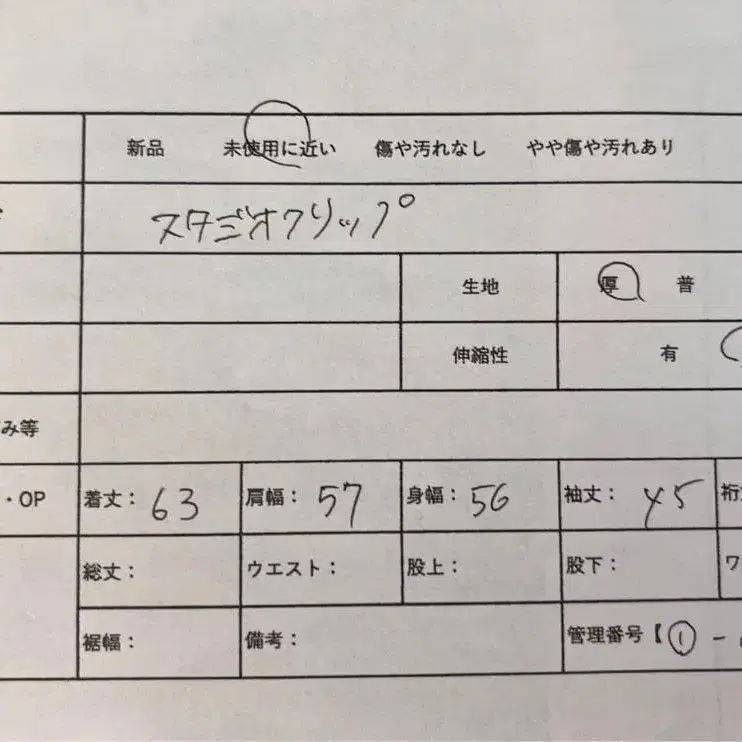 新品 未使用に近い 傷や汚れなし やや傷や汚れあり
スタジオクリップ
生地 厚 普
伸縮性 有
み等
・OP 着丈：63 肩幅：57 身幅：56 袖丈：45 裄
総丈： ウエスト： 股上： 股下： ワ
裾幅： 備考： 管理番号【① -